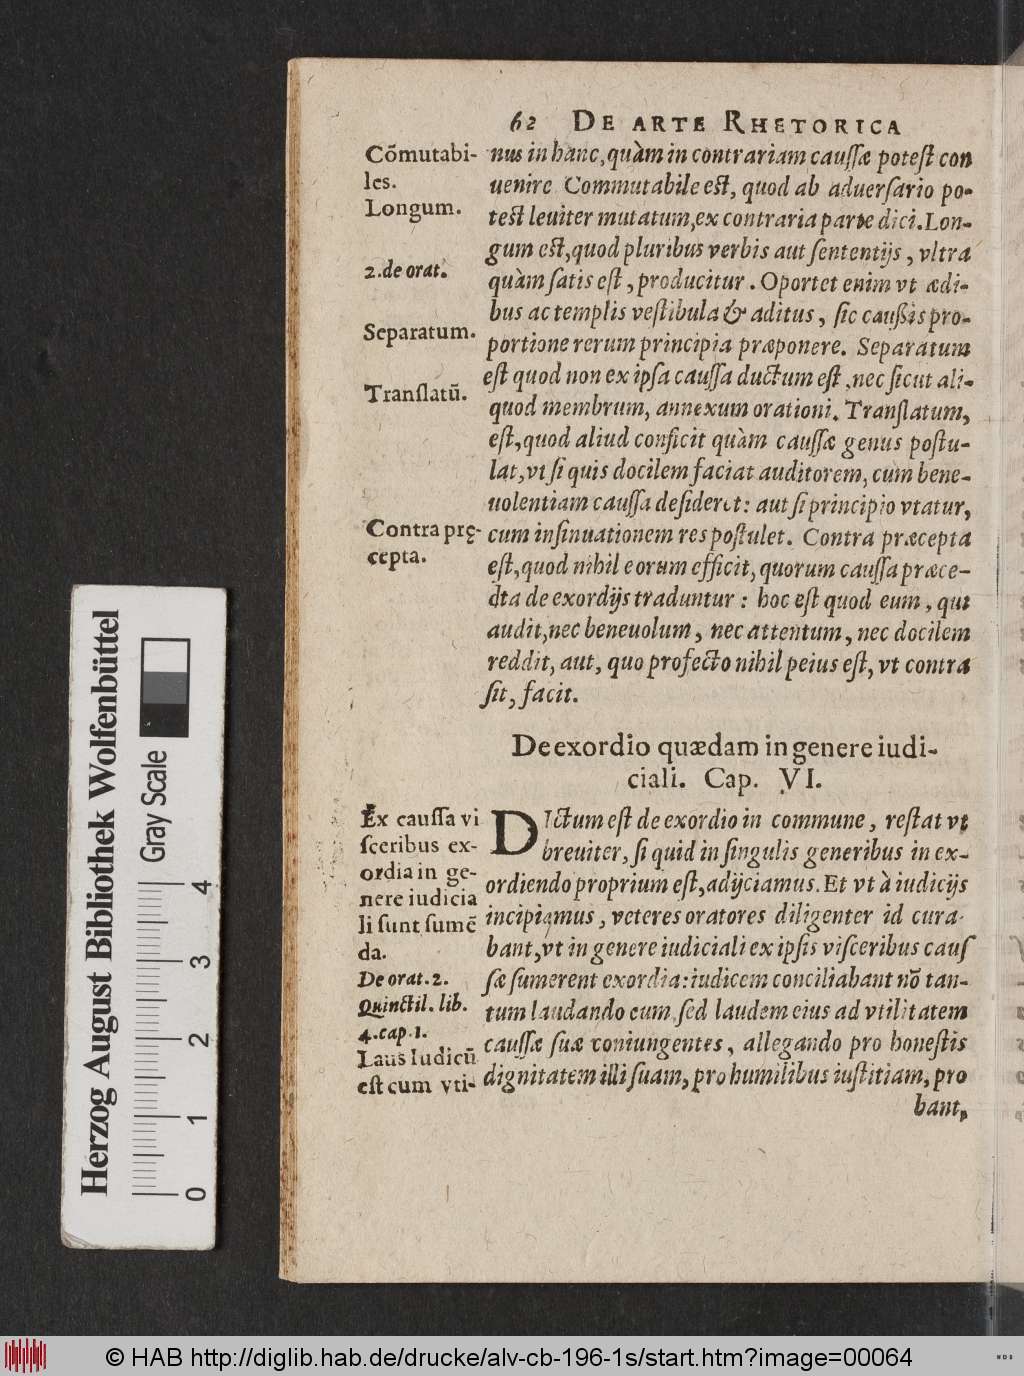 62 DE ARTE RHETORICA
Cõmutabi-
les.
Longum.
2. de orat.
Separatum.
Translatũ.
Contra prę-
cepta.
nus in hanc, quàm in contrariam caussæ potest con
uenire Commutabile est, quod ab aduersario po-
test leuiter mutatum, ex contraria parte dici. Lon-
gum est, quod pluribus verbis aut sententijs, vltra
quàm satis est, producitur. Oportet enim vt ædi-
bus ac templis vestibula & aditus, sic caußis pro-
portione rerum principia præponere. Separatum
est quod non ex ipsa caussa ductum est, nec sicut ali-
quod membrum, annexum orationi. Translatum,
est, quod aliud conficit quàm caussæ genus postu-
lat, vt si quis docilem faciat auditorem, cùm bene-
uolentiam caussa desideret: aut si principio vtatur,
cum insinuationem res postulet. Contra præcepta
est, quod nihil eorum efficit, quorum caussa præce-
dta de exordijs traduntur: hoc est quod eum, qui
audit, nec beneuolum, nec attentum, nec docilem
reddit, aut, quo profecto nihil peius est, vt contra
sit, facit.
De exordio quædam in genere iudi-
ciali. Cap. VI.
Ex caussa vi
sceribus ex-
ordia in ge-
nere iudicia
li sunt sumẽ
da.
De orat. 2.
Quinctil. lib.
4. cap. 1.
Laus Iudicũ
est cum vti-
DIctum est de exordio in commune, restat vt
breuiter, si quid in singulis generibus in ex-
ordiendo proprium est, adijciamus. Et vt à iudicijs
incipiamus, veteres oratores diligenter id cura-
bant, vt in genere iudiciali ex ipsis visceribus caus
sæ sumerent exordia: iudicem conciliabant nõ tan-
tum laudando eum, sed laudem eius ad vtilitatem
caussæ suæ coniungentes, allegando pro honestis
dignitatem illi suam, pro humilibus iustitiam, pro
bant,
Herzog August Bibliothek Wolfenbüttel
Gray Scale
0 1 2 3 4
© HAB http://diglib.hab.de/drucke/alv-cb-196-1s/start.htm?image=00064